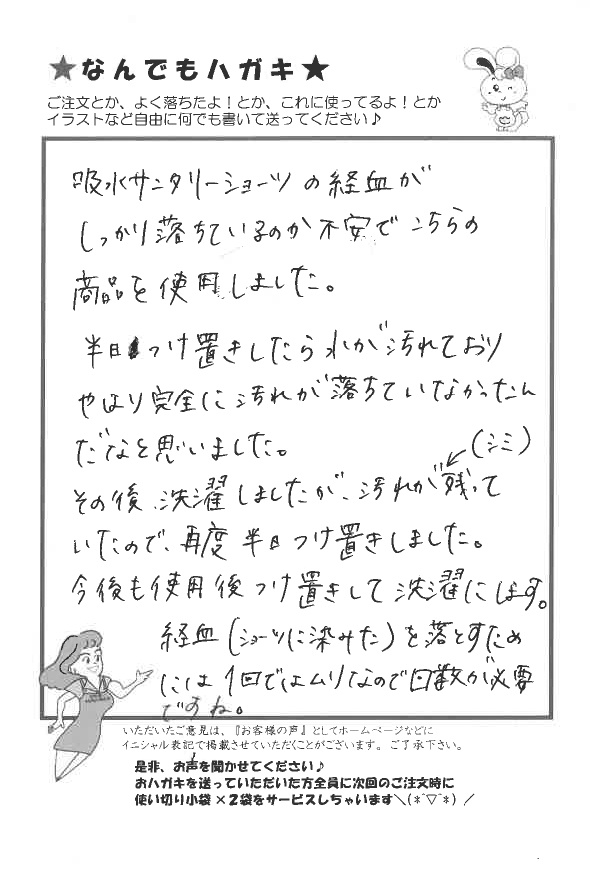 ★なんでもハガキ★
ご注文とか、よく落ちたよ！とか、これに使ってるよ！とか
イラストなど自由に何でも書いて送ってください♪
吸水サンタリーショーツの経血が
しっかり落ちているのか不安でこちらの
商品を使用しました。
半日つけ置きしたら水が汚れており
やはり完全に汚れが落ちていなかったん
だなと思いました。
(シミ)
その後、洗濯しましたが、汚れが残って
いたので、再度半日つけ置きしました。
今後も使用後つけ置きして洗濯にします。
経血(ショーツに染みた)を落とすため
には1回ではムリなので回数が必要
ですね。
いただいたご意見は、『お客様の声』としてホームページなどに
イニシャル表記で掲載させていただくことがございます。ご了承下さい。
是非、お声を聞かせてください♪
おハガキを送っていただいた方全員に次回のご注文時に
使い切り小袋×2袋をサービスしちゃいます＼(*￣▽￣*)／